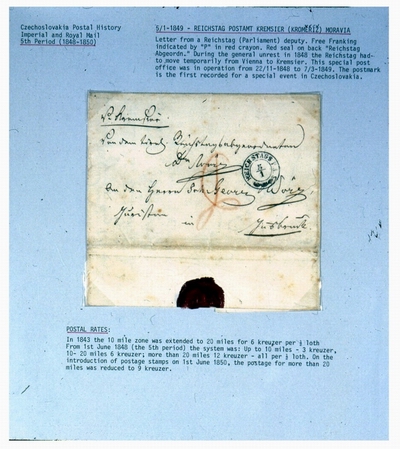 Czechoslovakia Postal History
Imperial and Royal Mail
5th Period (1848-1850)
5/1-1849 - REICHSTAG POSTAMT KREMSIER (KROMĚŘÍŽ) MORAVIA
Letter from a Reichstag (Parliament) deputy. Free Franking
indicated by "P" in red crayon. Red seal on back "Reichstag
Abgeordn." During the general unrest in 1848 the Reichstag had
to move temporarily from Vienna to Kremsier. This special post
office was in operation from 22/11-1848 to 7/3-1849. The postmark
is the first recorded for a special event in Czechoslovakia.
Kremsier
Von dem Reichstagsabgeordneten
An den Herrn
in
Innsbruck
POSTAL RATES:
In 1843 the 10 mile zone was extended to 20 miles for 6 kreuzer per ½ loth
From 1st June 1848 (the 5th period) the system was: Up to 10 miles - 3 kreuzer,
10- 20 miles 6 kreuzer; more than 20 miles 12 kreuzer - all per ½ loth. On the
introduction of postage stamps on 1st June 1850, the postage for more than 20
miles was reduced to 9 kreuzer.